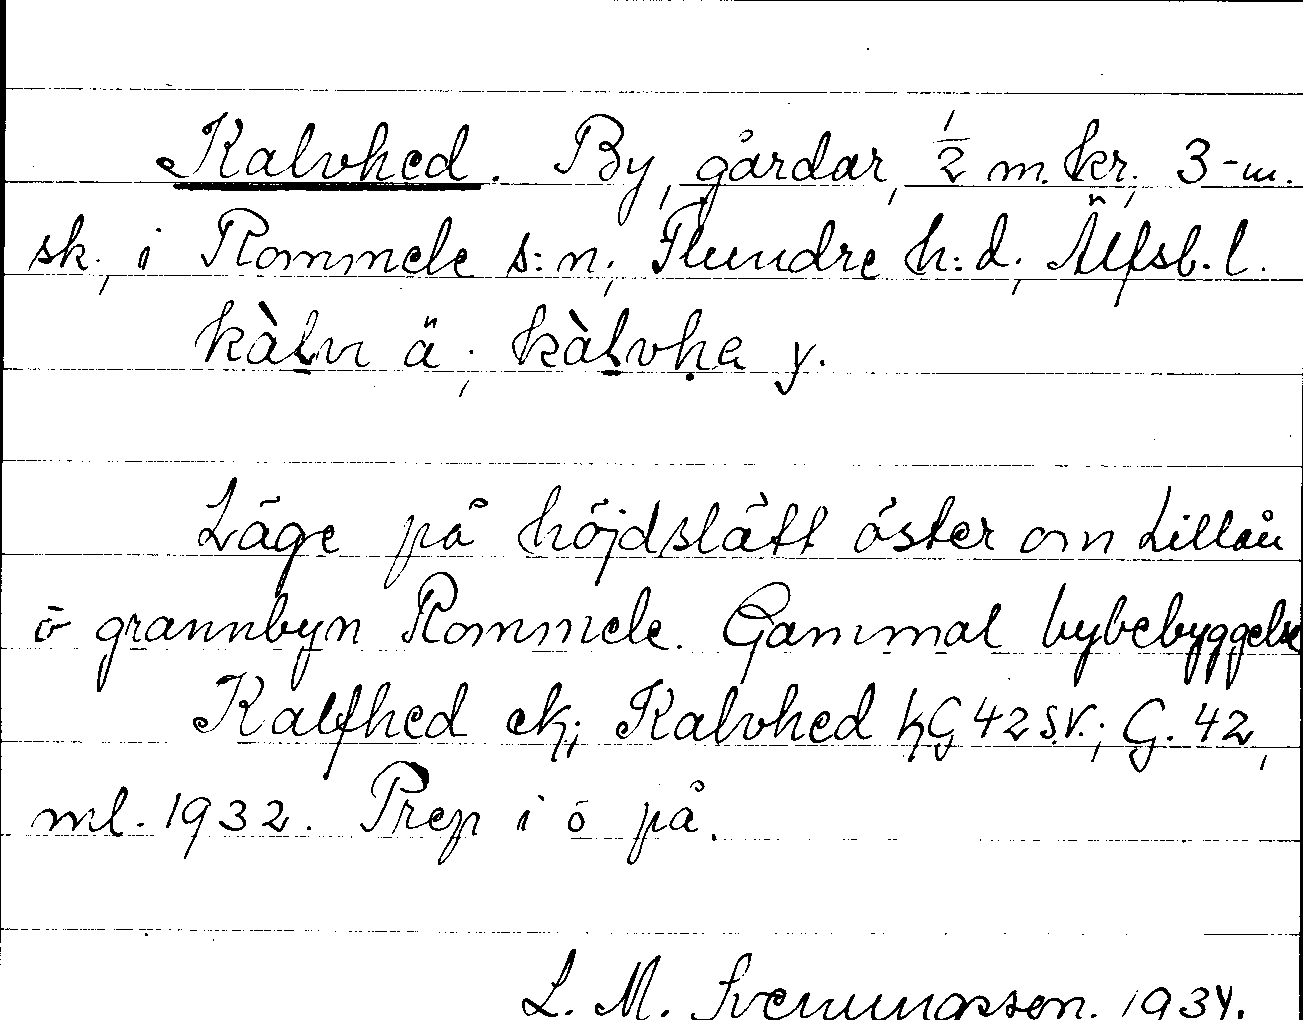 Kalvhed. By, gårdar, 1/2 m. kr, 3-m.
sk, i Rommele s:n, Flundre h:d, Älfsb. l.
kàlv ä, kàlvhe y.
Läge på höjdslätt öster om Lillån
o grannbyn Rommele. Gammal bybebyggelse
Kalfhed ek; Kalvhed hG 42 S.V.; G. 42,
ml. 1932. Prep i o på.
L. M. Svenungsson. 1934.